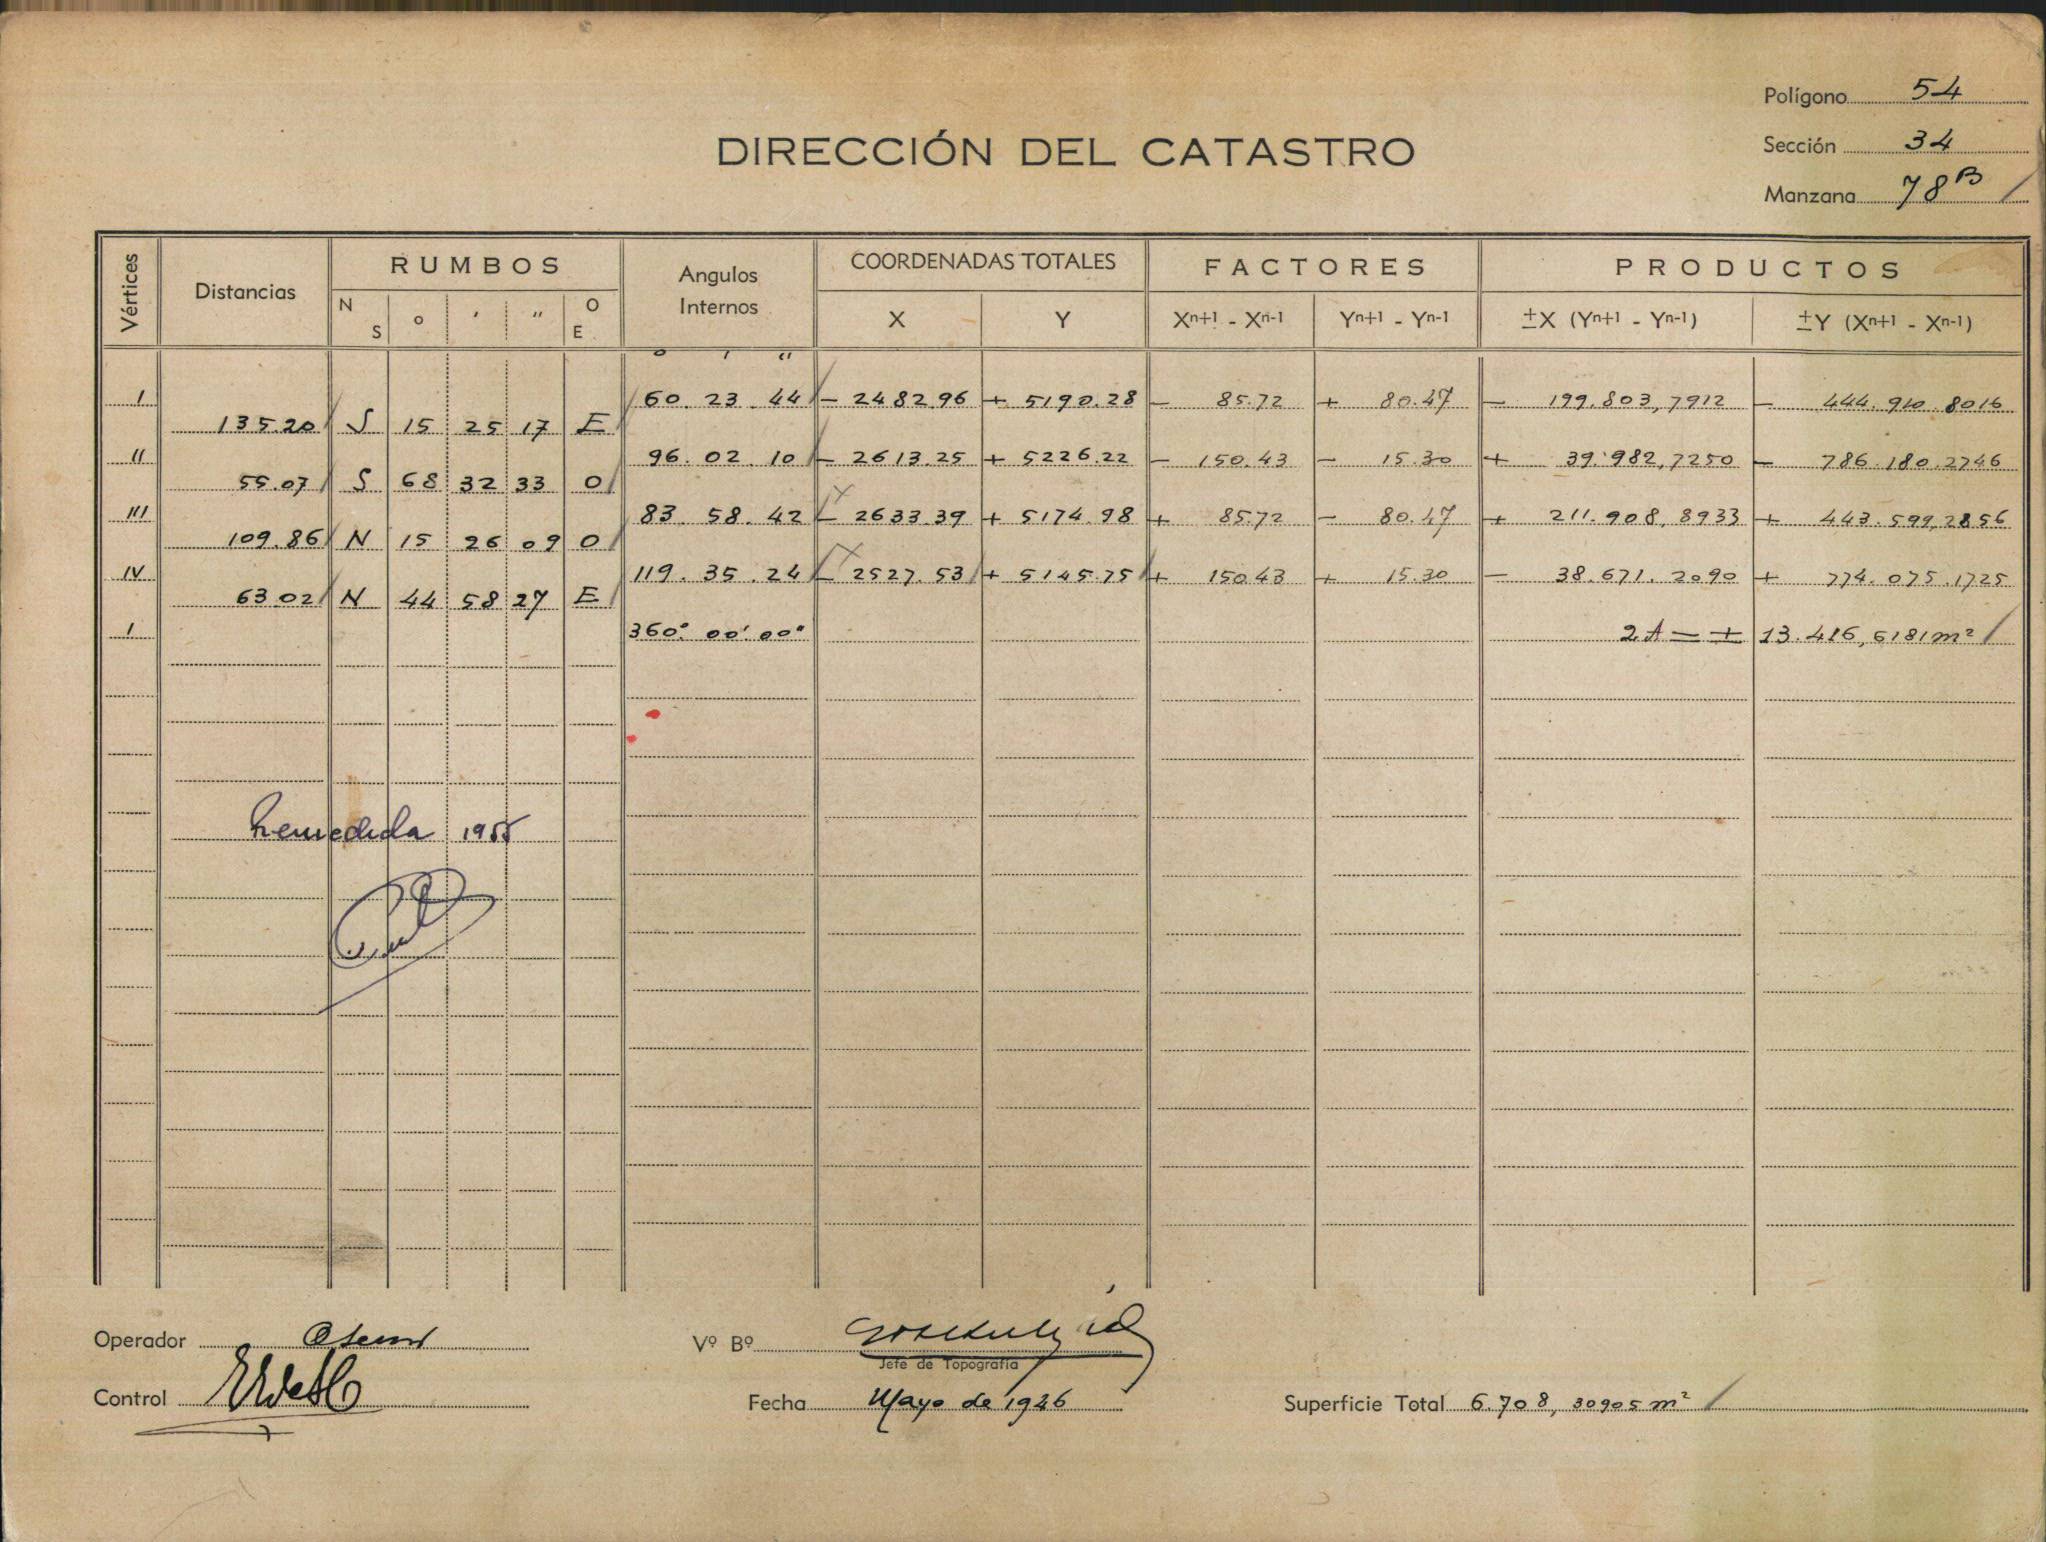 Polígono 54
DIRECCIÓN DEL CATASTRO
Sección 34
Manzana 78 B
Vértices Distancias RUMBOS Angulos Internos COORDENADAS TOTALES FACTORES PRODUCTOS
N S ° ' " O E X Y Xn+1 - Xn-1 Yn+1 - Yn-1 ±X (Yn+1 - Yn-1) ±Y (Xn+1 - Xn-1)
° ' "
I 60. 23. 44 - 2482.96 + 5190.28 - 85.72 + 80.47 - 199.803,7912 - 444.910.8016
135.20 S 15 25 17 E
II 96. 02. 10 - 2613.25 + 5226.22 - 150.43 - 15.30 + 39.982,7250 - 786.180.2746
55.07 S 68 32 33 O
III 83. 58. 42 - 2633.39 + 5174.98 + 85.72 - 80.47 + 211.908,8933 + 443.599,2856
109.86 N 15 26 09 O
IV 119. 35. 24 - 2527.53 + 5145.75 + 150.43 + 15.30 - 38.671.2090 + 774.075.1725
63.02 N 44 58 27 E
I 360° 00' 00" 2A = ± 13.416,6181 m²
Remedida 1955
Operador
Vº Bº
Jefe de Topografía
Control
Fecha Mayo de 1946
Superficie Total 6.708,30905 m²